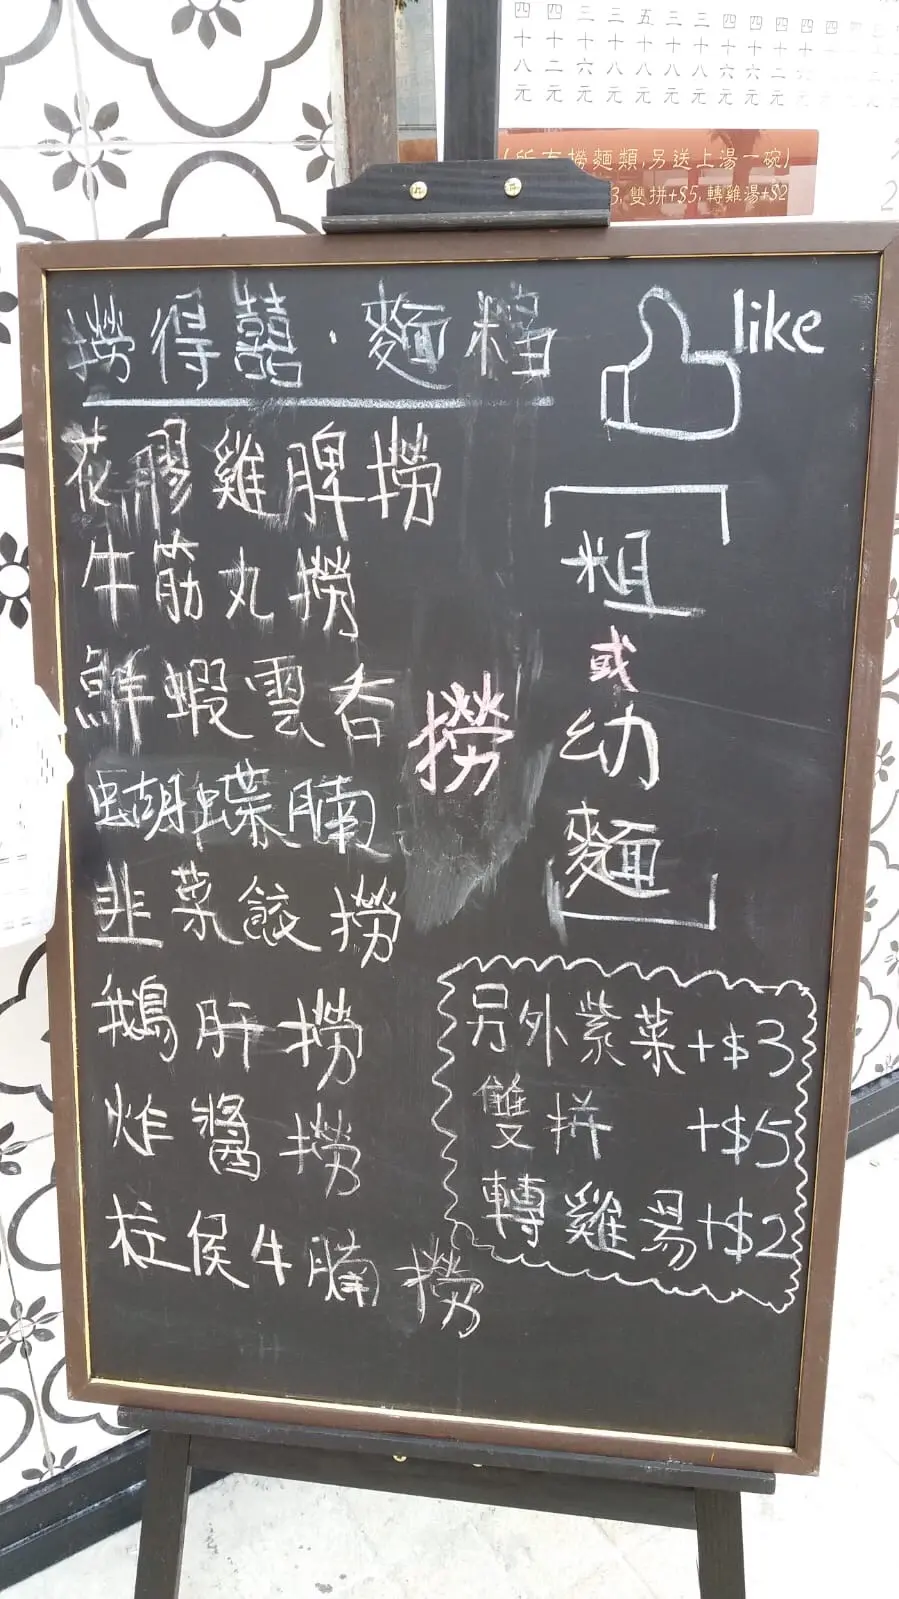 四十八元
四十二元
三十六元
三十八元
五十八元
三十八元
三十八元
四十六元
四十六元
四十二元
(所有撈麵類,另送上湯一碗)
3,雙拼+$5,轉雞湯+$2
撈得囍·麵檔
like
花膠雞脾撈
牛筋丸撈
鮮蝦雲吞
蝴蝶腩
撈
韭菜餃撈
鵝肝撈
炸醬撈
柱侯牛腩撈
粗
或
幼
麵
另外紫菜+$3
雙拼 +$5
轉雞湯+$2